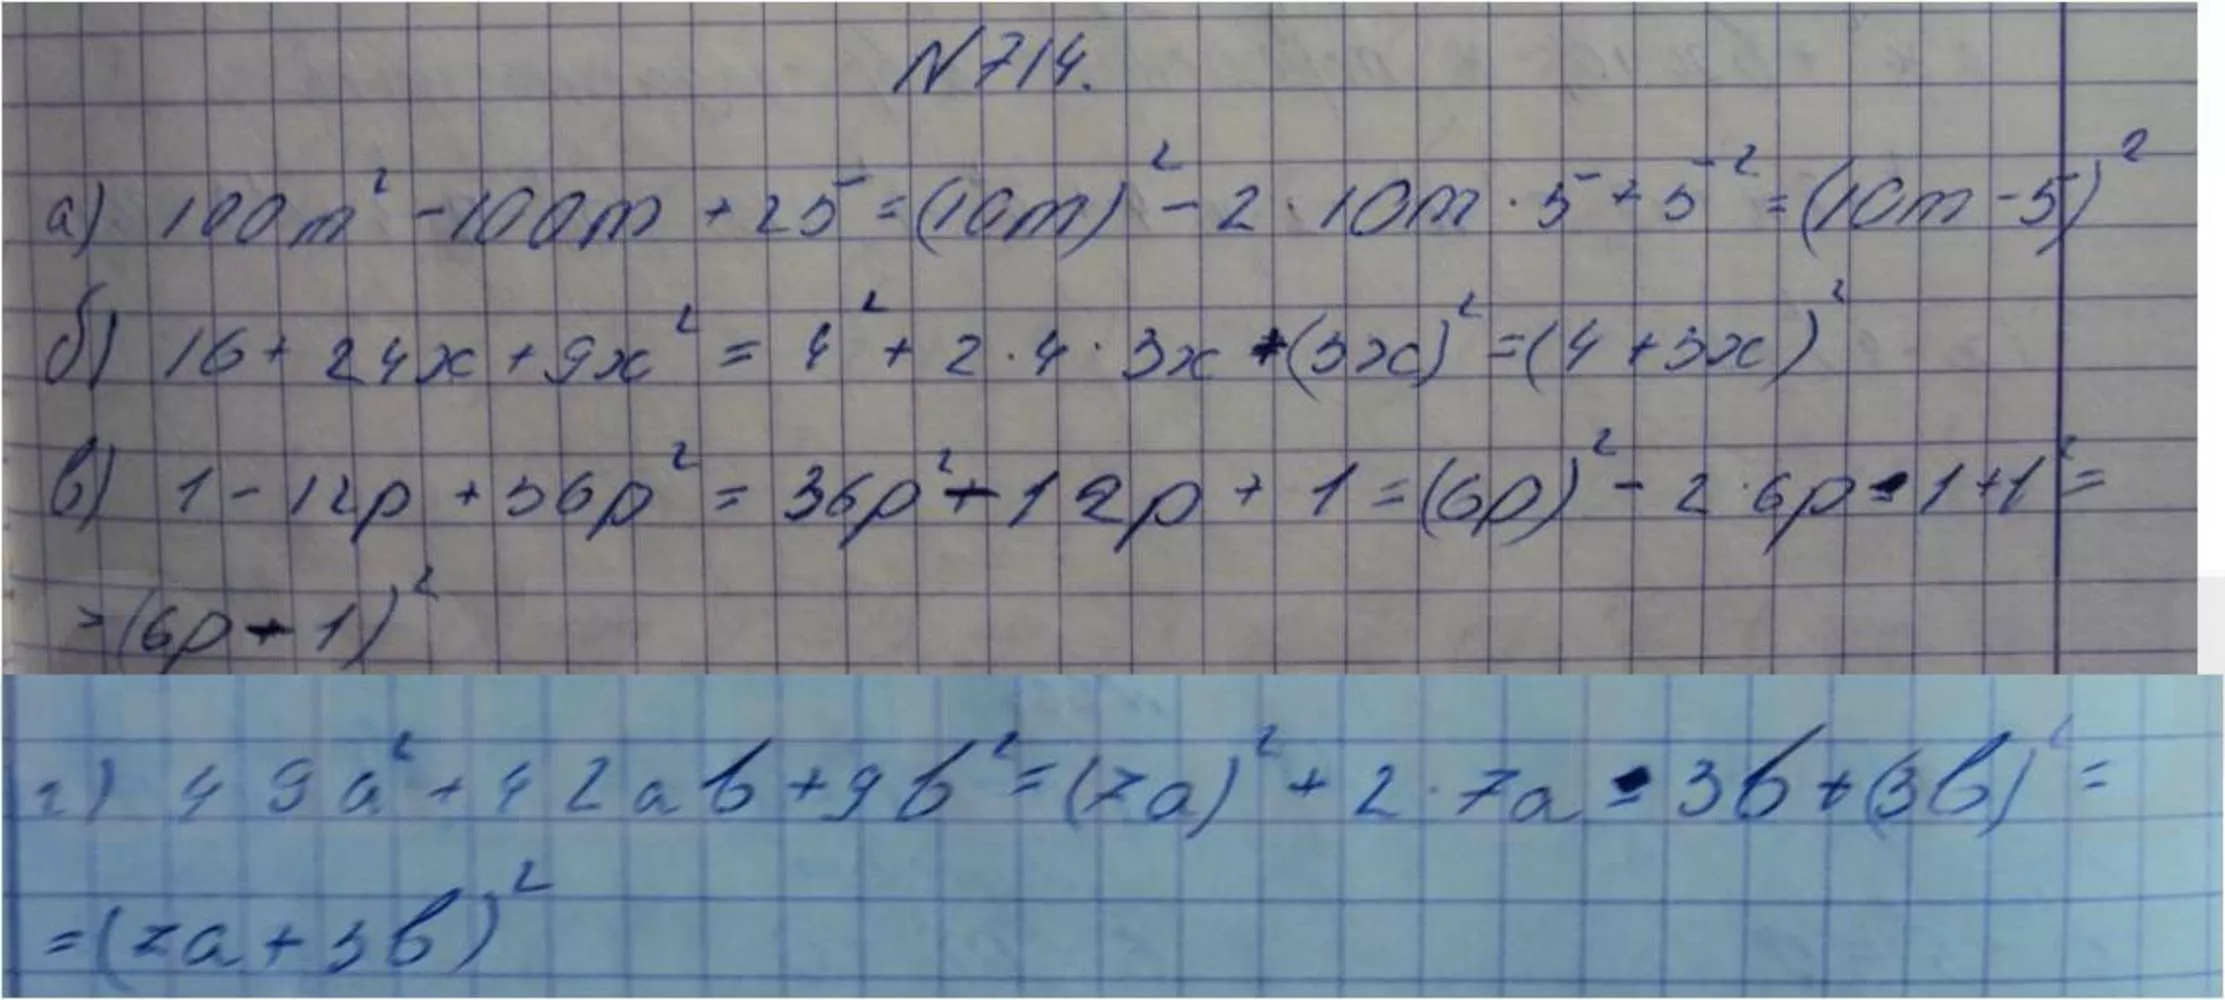 N714.
а) 100m² - 100m + 25 = (10m)² - 2 · 10m · 5 + 5² = (10m - 5)²
б) 16 + 24x + 9x² = 4² + 2 · 4 · 3x + (3x)² = (4 + 3x)²
в) 1 - 12p + 36p² = 36p² - 12p + 1 = (6p)² - 2 · 6p · 1 + 1² =
= (6p - 1)²
г) 49a² + 42ab + 9b² = (7a)² + 2 · 7a · 3b + (3b)² =
= (7a + 3b)²